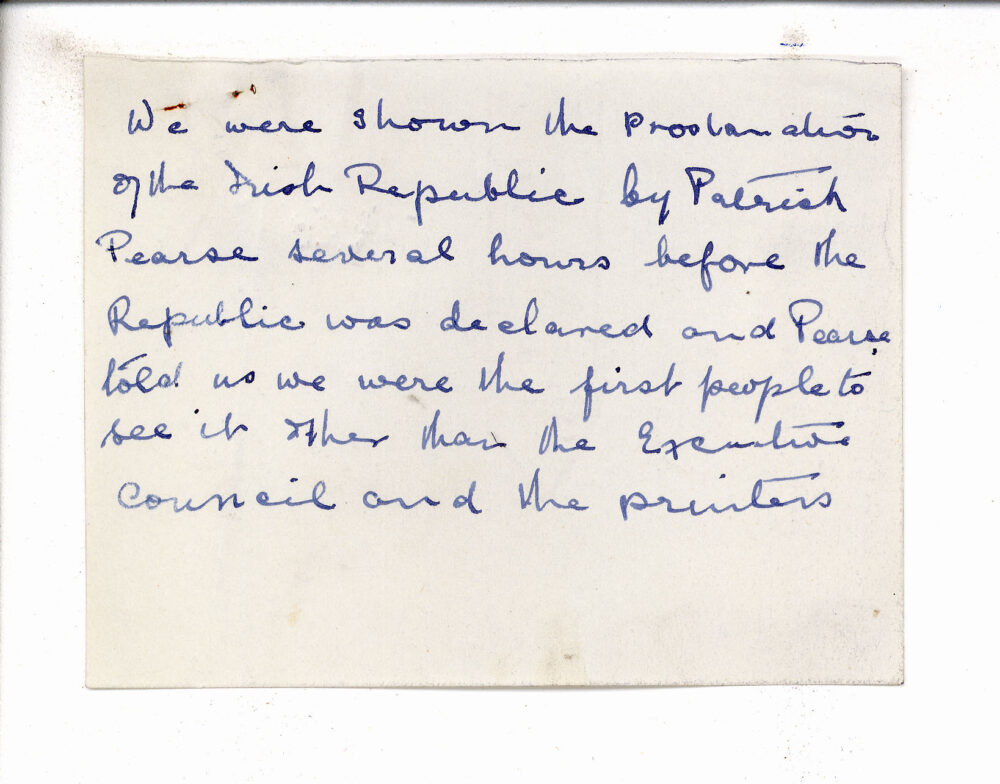 We were shown the Proclamation
of the Irish Republic by Patrick
Pearse several hours before the
Republic was declared and Pearse
told us we were the first people to
see it other than the Executive
Council and the printers